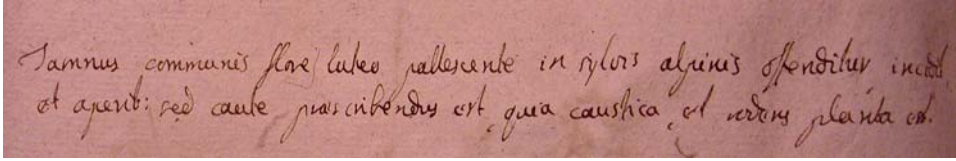 Tamnus communis flore luteo pallescente in sylvis alpinis offenditur, incidit,
et aperit: sed caute præscribendus est, quia caustica, et urens planta est.